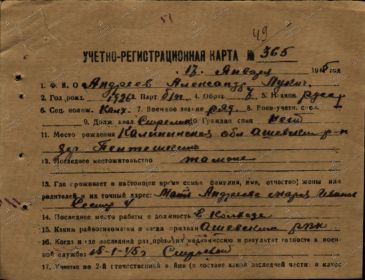 49
УЧЕТНО-РЕГИСТРАЦИОННАЯ КАРТА № 365
13 Января 194 год
1. Ф. И. О Андреев Александр
2. Год рожд. 1926г Парт б/п 4. Образ. 5. Национ. русс
6. Соц. полож. Колх. 7. Военное звание ряд. 8. Воен-учетн. спец. 1
9. Долж квал. Стрелок 10. Граждан спец нет
11. Место рождения Калининская обл Ашевский р-н
дер
12. Последнее местожительство также
13. Где проживает в настоящее время семья фамилия, имя, отчество) жены или
родителей и их точный адрес: Мать Андреева Мария Иванов
14. Последнее место работы и должность в Колхозе
15. Каким райвоенкоматом и когда призван Ашевским рвк
16. Когда и где последний раз проходил медкомиссию и результат годности к воен-
ной службе
17. Участие во 2-й отечественной в йне (в составе какой последней части и каког